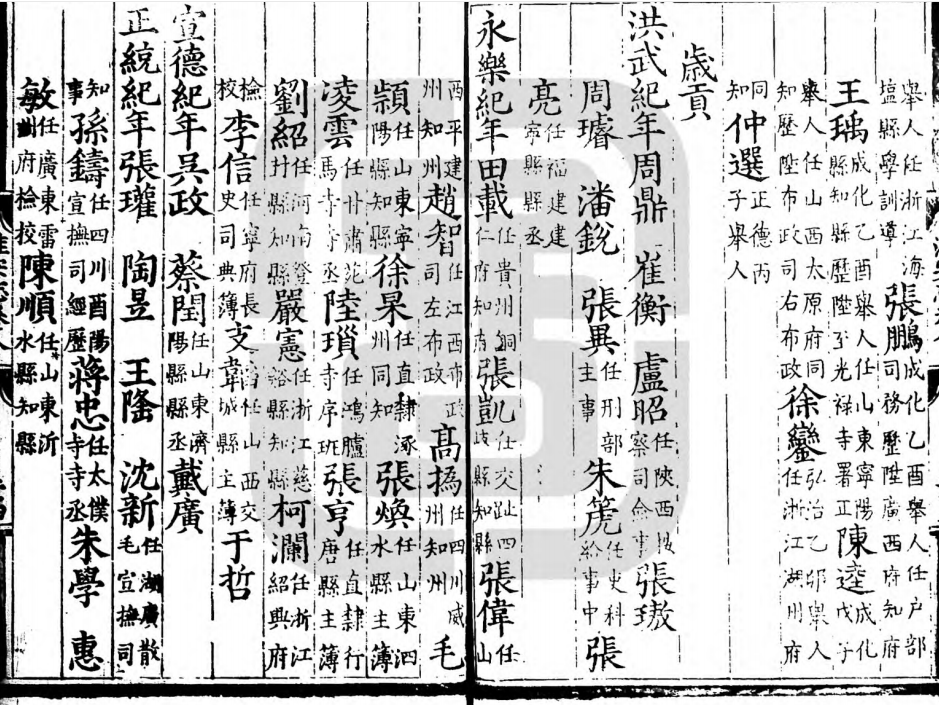 舉人任浙江海塩縣學訓導張鵬成化乙酉舉人任户部司務歷陞廣西府知府
王瑀成化乙酉舉人任山東寧陽縣知縣歷陞至光禄寺署正陳逵成化戊子
舉人任山西太原府同知歷陞布政司右布政徐鑾弘治乙卯舉人任浙江湖州府
同知仲選正德丙子舉人
歲貢
洪武紀年周鼎 崔衡 盧昭任陝西按察司僉事張璈
周璿 潘銳 張異任刑部主事朱箎任吏科給事中張
亮任福建建寧縣縣丞
永樂紀年田載任貴州銅仁府知府張凱任交趾四岐縣知縣張偉任山
西平建州知州趙智任江西布政司左布政高撝任四川威州知州毛
顈任山東寧陽縣知縣徐杲任直隸涿州同知張煥任山東泗水縣主簿
凌雲任甘肅苑馬寺寺丞陸瑣任鴻臚寺序班張亨任直隸行唐縣主簿
劉紹任河南登封縣知縣嚴憲任浙江慈谿縣知縣柯瀾任浙江紹興府
檢校李信任寧府長史司典簿文韋任山西交城縣主簿于哲
宣德紀年吳政 蔡閏任山東濟陽縣縣丞戴廣
正統紀年張瓘 陶昱 王隆 沈新任湖廣散毛宣撫司
知事孫鑄任四川酉陽宣撫司經歷蔣忠任太僕寺寺丞朱學 惠
敏任廣東雷州府檢校陳順任山東沂水縣知縣